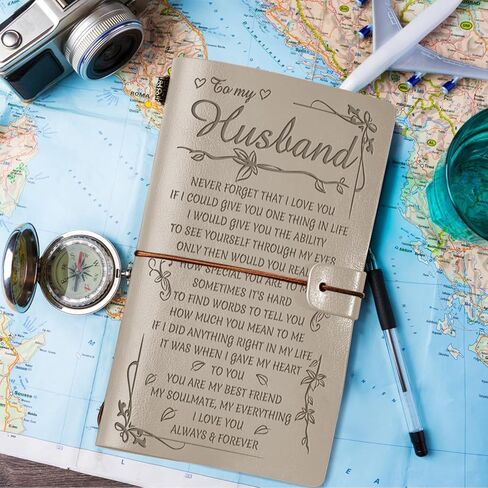 To my
Husband
NEVER FORGET THAT I LOVE YOU
IF I COULD GIVE YOU ONE THING IN LIFE
I WOULD GIVE YOU THE ABILITY
TO SEE YOURSELF THROUGH MY EYES
ONLY THEN WOULD YOU REAL
HOW SPECIAL YOU ARE TO
SOMETIMES IT'S HARD
TO FIND WORDS TO TELL YOU
HOW MUCH YOU MEAN TO ME
IF I DID ANYTHING RIGHT IN MY LIFE
IT WAS WHEN I GAVE MY HEART
TO YOU
YOU ARE MY BEST FRIEND
MY SOULMATE, MY EVERYTHING
I LOVE YOU
ALWAYS & FOREVER
ROMA